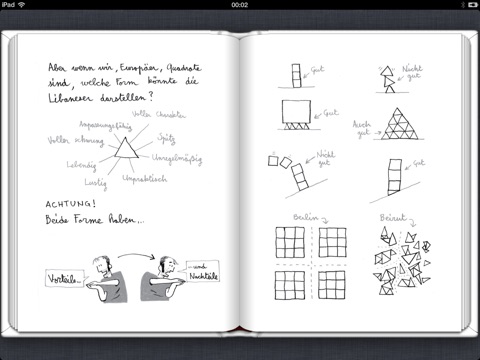 iPad
00:02
Aber wenn wir, Europäer, Quadrate
sind, welche Form könnte die
Libaneser darstellen?
Voller Charakter
Anpassungsfähig
Spitz
Voller schwung
Unregelmäßig
Lebendig
Unpraktisch
Lustig
ACHTUNG!
Beide Forme haben...
Vorteile...
...und
Nachteile
Gut
Nicht
gut
Gut
Auch
gut
Nicht
gut
Gut
Berlin
Beirut